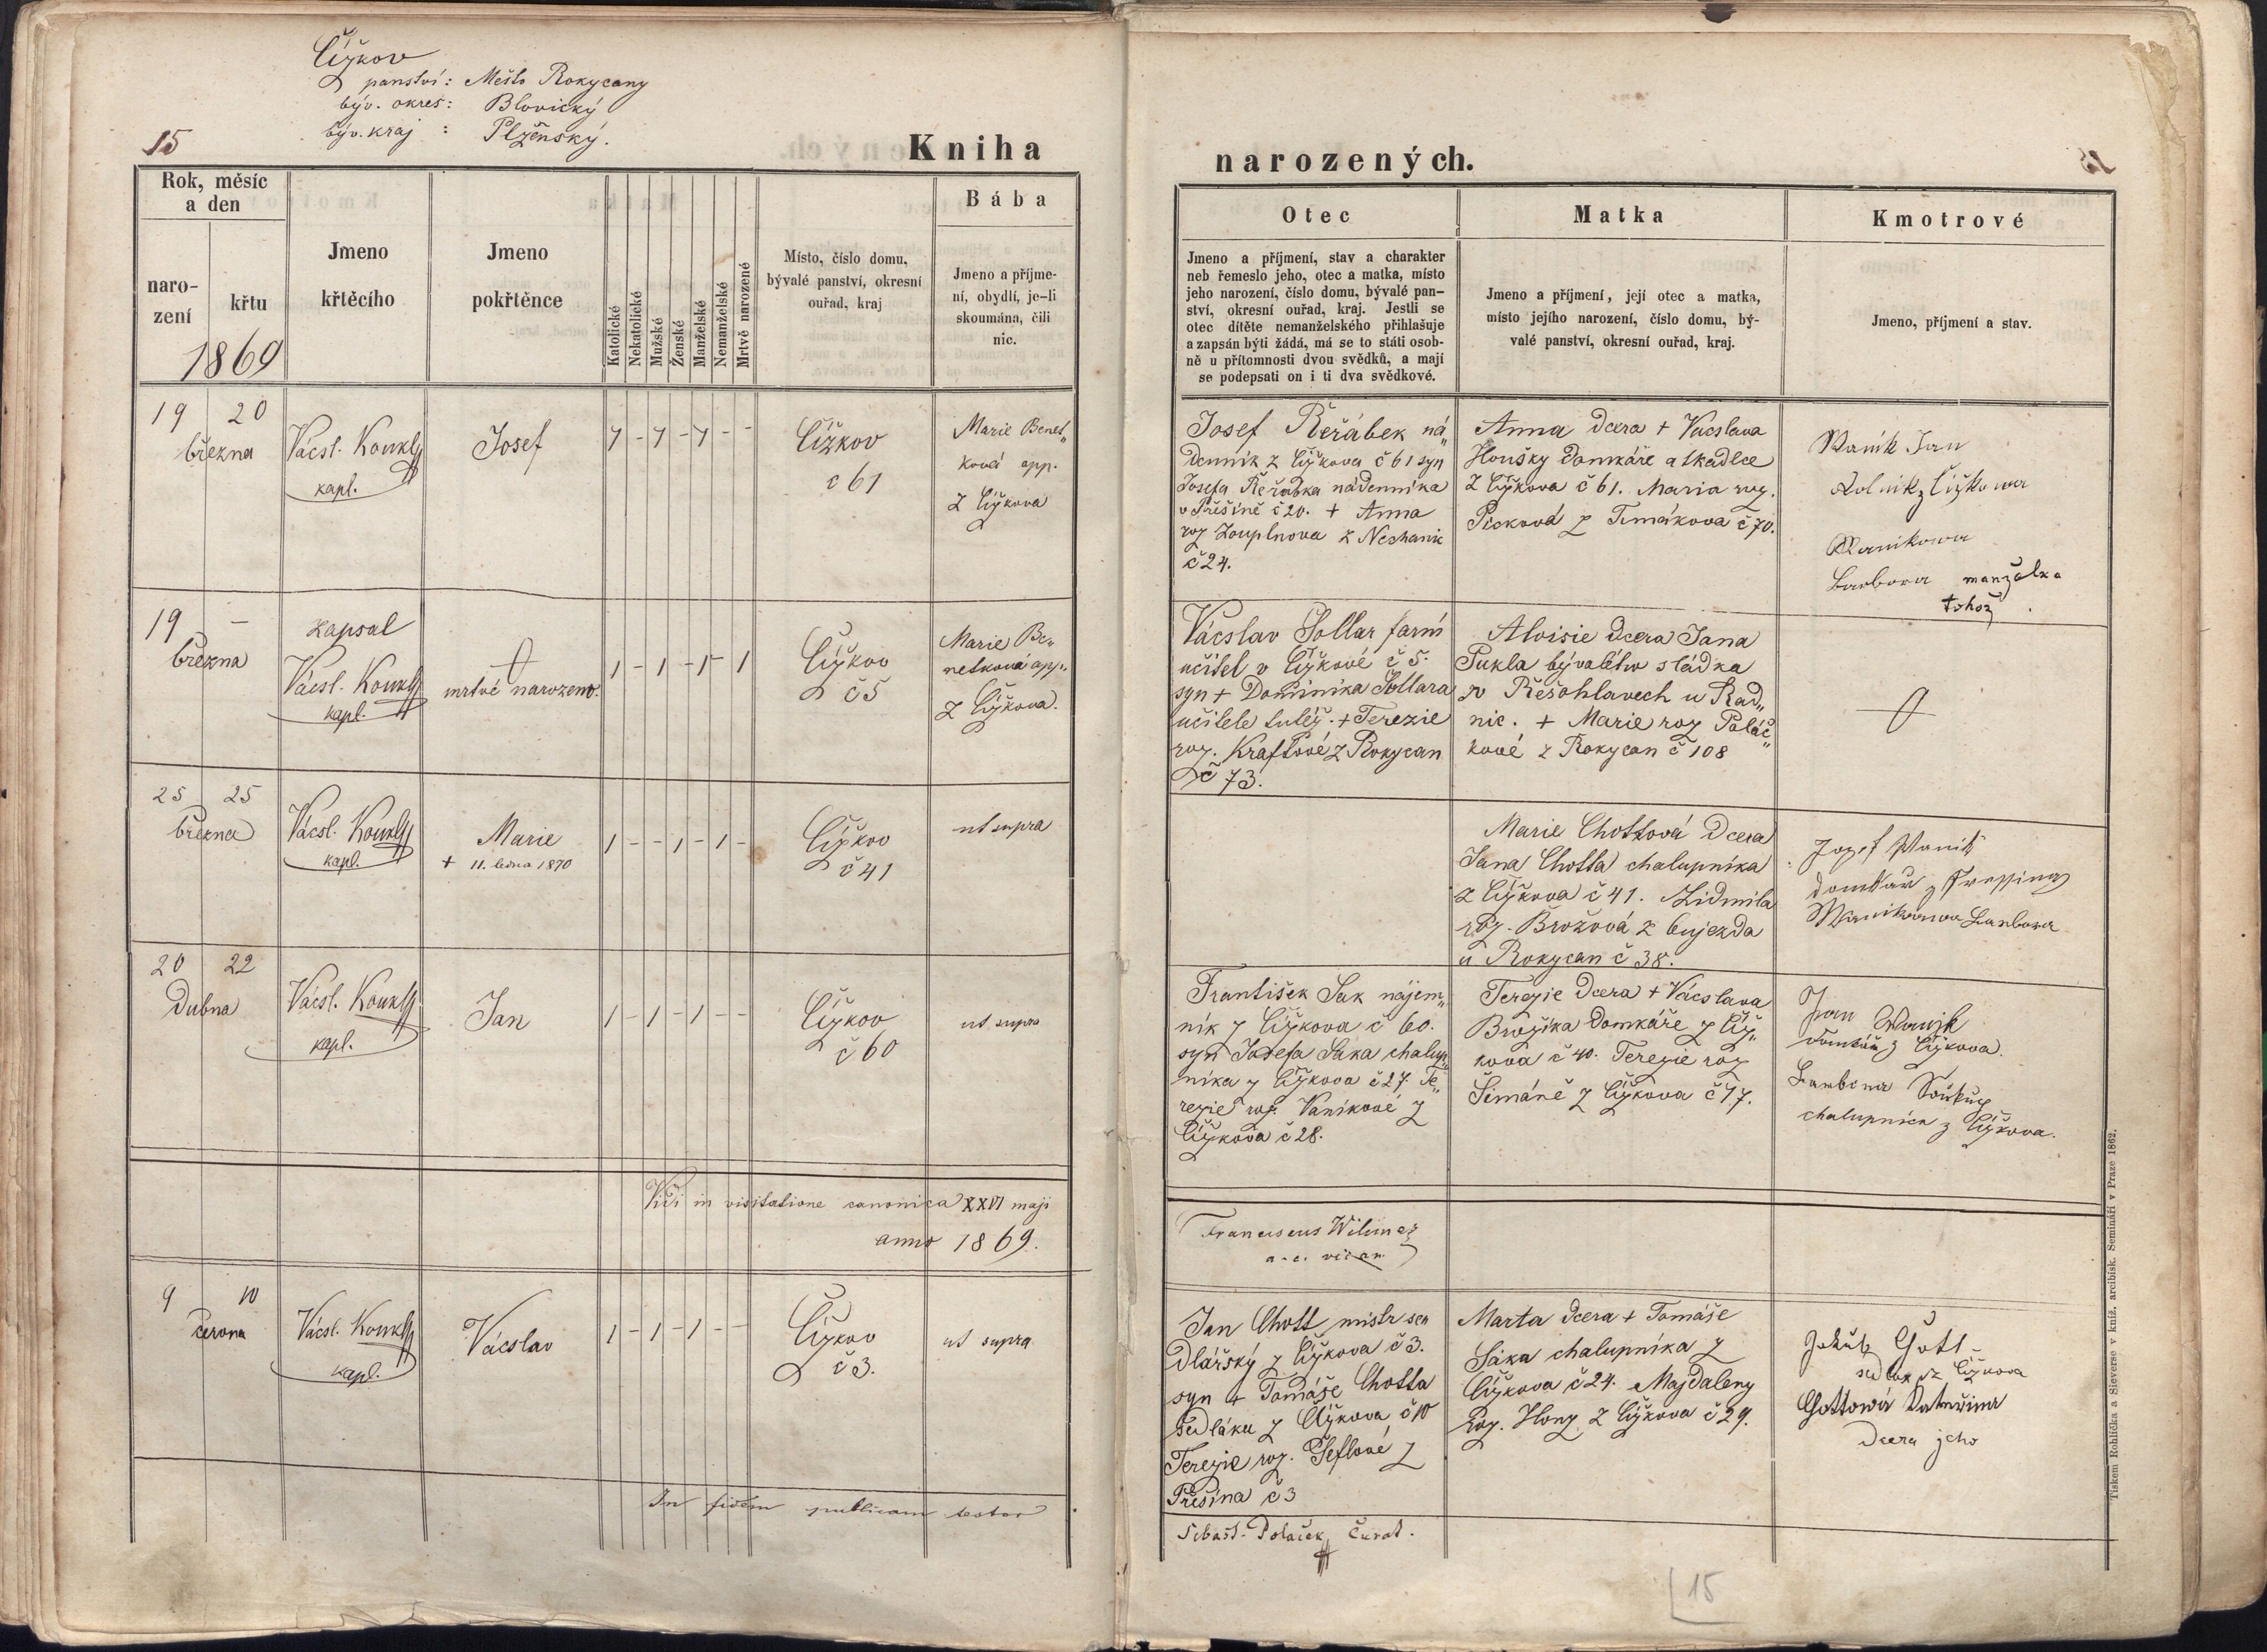 Čížkov
panství: Město Rokycany
býv. okres: Blovický
býv. kraj : Plzeňský.
15
Kniha
narozených.
Rok, měsíc
a den
naro-
zení
křtu
1869
Jmeno
křtěcího
Jmeno
pokřtěnce
Katolické
Nekatolické
Mužské
Ženské
Manželské
Nemanželské
Mrtvě narozené
Místo, číslo domu,
bývalé panství, okresní
ouřad, kraj
Bába
Jmeno a příjme-
ní, obydlí, je-li
skoumána, čili
nic.
Otec
Jmeno a příjmení, stav a charakter
neb řemeslo jeho, otec a matka, místo
jeho narození, číslo domu, bývalé pan-
ství, okresní ouřad, kraj. Jestli se
otec dítěte nemanželského přihlašuje
a zapsán býti žádá, má se to státi osob-
ně u přítomnosti dvou svědků, a mají
se podepsati on i ti dva svědkové.
Matka
Jmeno a příjmení, její otec a matka,
místo jejího narození, číslo domu, bý-
valé panství, okresní ouřad, kraj.
Kmotrové
Jmeno, příjmení a stav.
19 20
března
Vácsl. Koukl
kapl.
Josef
1 - 1 - 1 - -
Čížkov
č 61
Marie Benet„
ková app.
z Čížkova
Josef Řeřábek ná„
denník z Čížkova č 61 syn
Josefa Řeřábka nádenníka
v Přešíně č 20. + Anna
roz Zouplnova z Nechanic
č 24.
Anna dcera + Vácslava
Houšky domkáře a tkadlce
z Čížkova č 61. Maria roz.
Pecková z Timákova č 70.
Waník Jan
Rolnik z Čížkowa
Wanikowa
Barbora manželka
tohož.
19 -
března
zapsal
Vácsl. Koukl
kapl.
mrtvě narozeno.
1 - 1 - 1 - 1
Čížkov
č 5
Marie Be„
netková app.
z Čížkova.
Vácslav Šollar farní
učitel v Čížkově č 5.
syn + Dominika Šollara
učitele tutéž. + Terezie
roz. Kraftové z Rokycan
č 73.
Aloisie dcera Jana
Pukla bývalého sládka
v Řešohlavech u Rad„
nic. + Marie roz Poláč„
kové z Rokycan č 108
25 25
března
Vácsl. Koukl
kapl.
Marie
+ 11. ledna 1870
1 - - 1 - 1 -
Čížkov
č 41
ut supra
Marie Chottová dcera
Jana Chotta chalupníka
z Čížkova č 41. Lidmila
roz. Brožová z Oujezda
u Rokycan č 38.
Jozef Wanik
domkař z
Wanikowa Barbora
20 22
Dubna
Vácsl. Koukl
kapl.
Jan
1 - 1 - 1 - -
Čížkov
č 60
ut supra
František Sak nájem„
ník z Čížkova č 60.
syn Josefa Saka chalup„
níka z Čížkova č 27. Te„
rezie roz. Vaníkové z
Čížkova č 28.
Terezie dcera + Vácslava
Brožíka domkáře z Číž„
kova č 40. Terezie roz
Šimáně z Čížkova č 17.
Jan Wanjk
domkář z Čížkova.
Barbora Soukup
chalupnice z Čížkova.
Vidi in visitatione canonica XXVI maji
anno 1869.
Franciscus Wilimez
a. c. vican
9 10
června
Vácsl. Koukl
kapl.
Vácslav
1 - 1 - 1 - -
Čížkov
č 3.
ut supra
Jan Chott mistr sen
dlářský z Čížkova č 3.
syn + Tomáše Chotta
sedláka z Čížkova č 10
Terezie roz. Šeflové z
Přešína č 3
Marta dcera + Tomáše
Sáka chalupníka z
Čížkova č 24. Majdaleny
roz. Hong z Čížkova č 29.
Jakub Chott
sedlák z Čížkova
Chottowá Kateřina
dcera jeho
In fidem publicam testor
Sebast. Polaček, Curat.
Tiskem Rohlíčka a Sieverse v kníž. arcibisk. Semináři v Praze 1862.
15